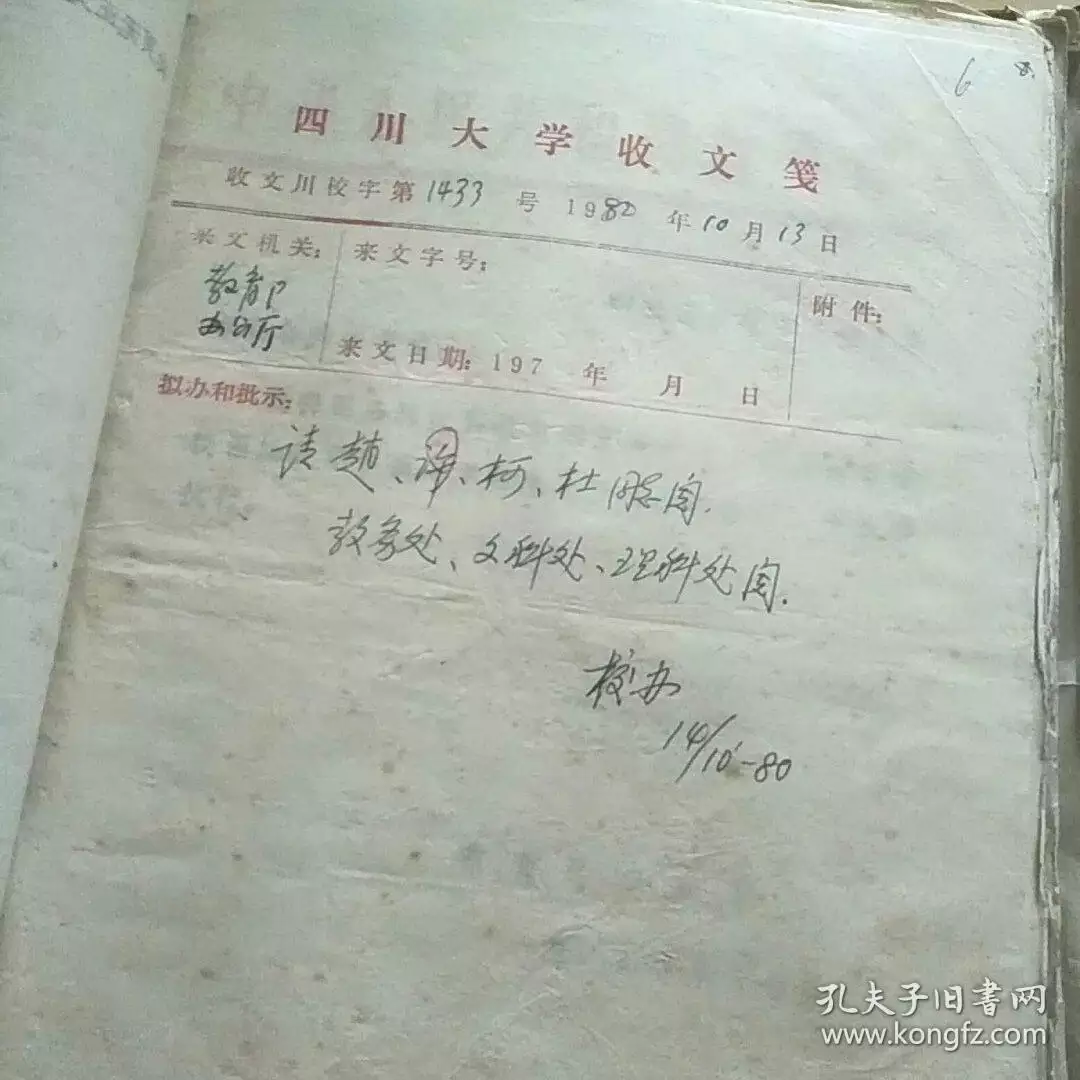 6 8.
四川大学收文笺
收文川校字第1433号 1980年10月13日
来文机关: 来文字号: 附件:
教育部
办公厅
来文日期: 197 年 月 日
拟办和批示:
请赵、、柯、杜 阅.
教务处、文科处、理科处阅.
校办
14/10-80
孔夫子旧书网
www.kongfz.com